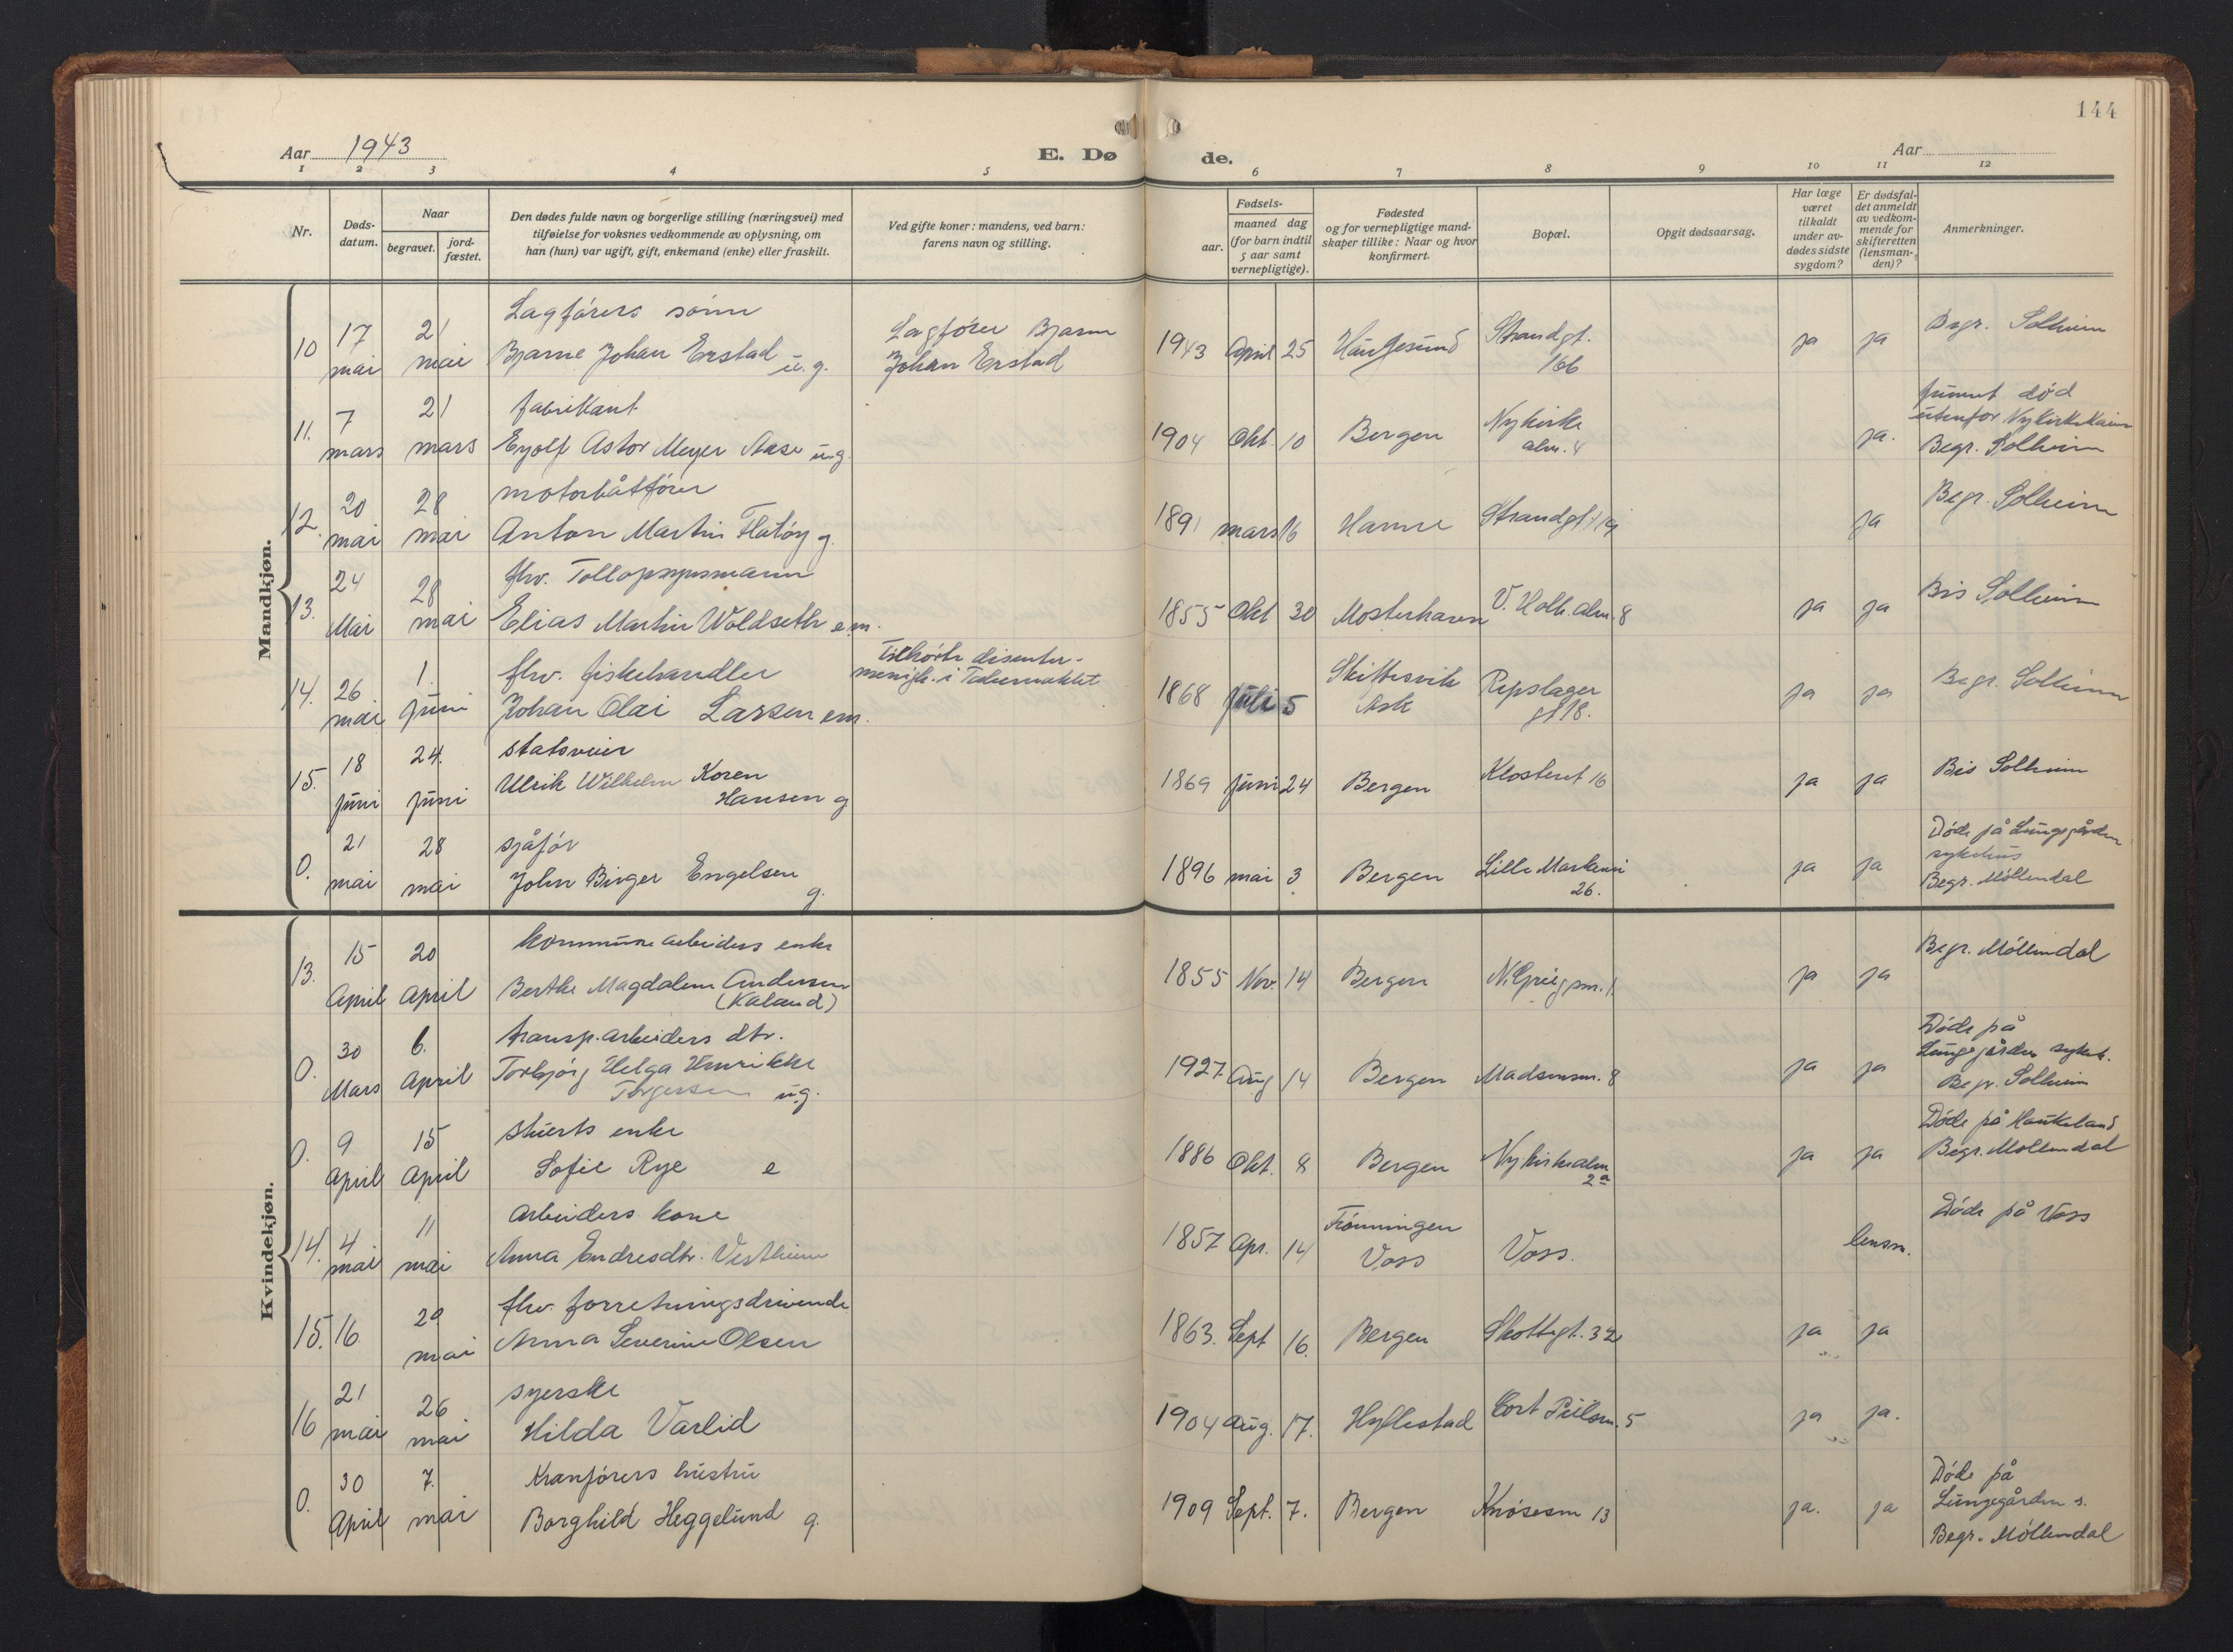 144
Aar 1943
E. Dø de.
Aar
1 2 3 4 5 6 7 8 9 10 11 12
Nr.
Døds-
datum.
Naar
begravet.
jord-
fæstet.
Den dødes fulde navn og borgerlige stilling (næringsvei) med
tilføielse for voksnes vedkommende av oplysning, om
han (hun) var ugift, gift, enkemand (enke) eller fraskilt.
Ved gifte koner: mandens, ved barn:
farens navn og stilling.
Fødsels-
aar.
maaned dag
(for barn indtil
5 aar samt
vernepligtige).
Fødested
og for vernepligtige mand-
skaper tillike: Naar og hvor
konfirmert.
Bopæl.
Opgit dødsaarsag.
Har læge
været
tilkaldt
under av-
dødes sidste
sygdom?
Er dødsfal-
det anmeldt
av vedkom-
mende for
skifteretten
(lensman-
den)?
Anmerkninger.
Mandkjøn.
10 17 mai 21 mai
Lagførers sønn
Bjarne Johan Erstad u.g.
Lagfører Bjarne
Johan Erstad
1943 April 25 Haugesund Strandgt.
166
ja ja Begr. Solheim
11. 7 mars 21 mars
fabrikant
Eyolf Astor Meyer Aase u.g.
1904 Okt. 10 Bergen Nykirke
alm. 4
ja. funnet død
utenfor Nykirkekaien
Begr. Solheim
12. 20 mai 28 mai
motorbåtfører
Anton Martin Flatøy g.
1891 mars 16 Hamre Strandgt. 19
ja Begr. Solheim
13. 24 Mai 28 mai
fhv. Tollopsynsmann
Elias Martin Woldseth e.m.
1855 Okt 30 Mosterhavn V. Holb. alm. 8
ja ja Bis Solheim
14. 26 mai 1. juni
fhv. fiskehandler
Johan Olai Larsen em.
Tilhørte disenter-
menigh. i Tabernaklet
1868 juli 5 Skiftesvik
Ask
Repslager
gt 18.
ja ja Begr. Solheim
15. 18 juni 24. juni
statsveier
Ulrik Wilhelm Koren
Hansen g
1869 juni 24 Bergen Klosteret 16
ja ja Bis Solheim
0. 21 mai 28 mai
sjåfør
John Birger Engelsen
g.
1896 mai 3 Bergen Lille Markevei
26.
ja ja Døde på Lungegården
sykehus
Begr. Møllendal
Kvindekjøn.
13. 15 April 20 April
kommunearbeiders enke
Berthe Magdalene Andersen
(Kaland)
1855 Nov. 14 Bergen N. Griegsm. 1.
ja ja Begr. Møllendal
0. 30 Mars 6. April
transp. arbeiders dtr.
Torbjørg Helga Henrikke
Torgersen u.g.
1927 Aug 14 Bergen Madsensm. 8
ja ja Døde på
Lungegården sykeh.
Begr. Solheim
0. 9 April 15 April
Stuerts enke
Sofie Rye e
1886 Okt. 8 Bergen Nykirkealm
2a
ja ja Døde på Haukeland
Begr. Møllendal
14. 4 mai 11 mai
Arbeiders kone
Anna Endresdtr. Vestheim
1857 Apr. 14 Frønningen
Voss
Voss.
lensm. Døde på Voss
15. 16 20 mai
fhv. forretningsdrivende
Anna Severine Olsen
1863. Sept 16. Bergen Skottegt. 32
ja ja
16 21 mai 26 mai
syerske
Hilda Varlid
1904 Aug. 17. Hyllestad Cort Piilsm. 5
ja ja.
0. 30 April 7. mai
Kranførers hustru
Borghild Heggelund g.
1909 Sept. 7. Bergen Knøsesm 13
ja. ja Døde på
Lungegården s.
Begr. Møllendal